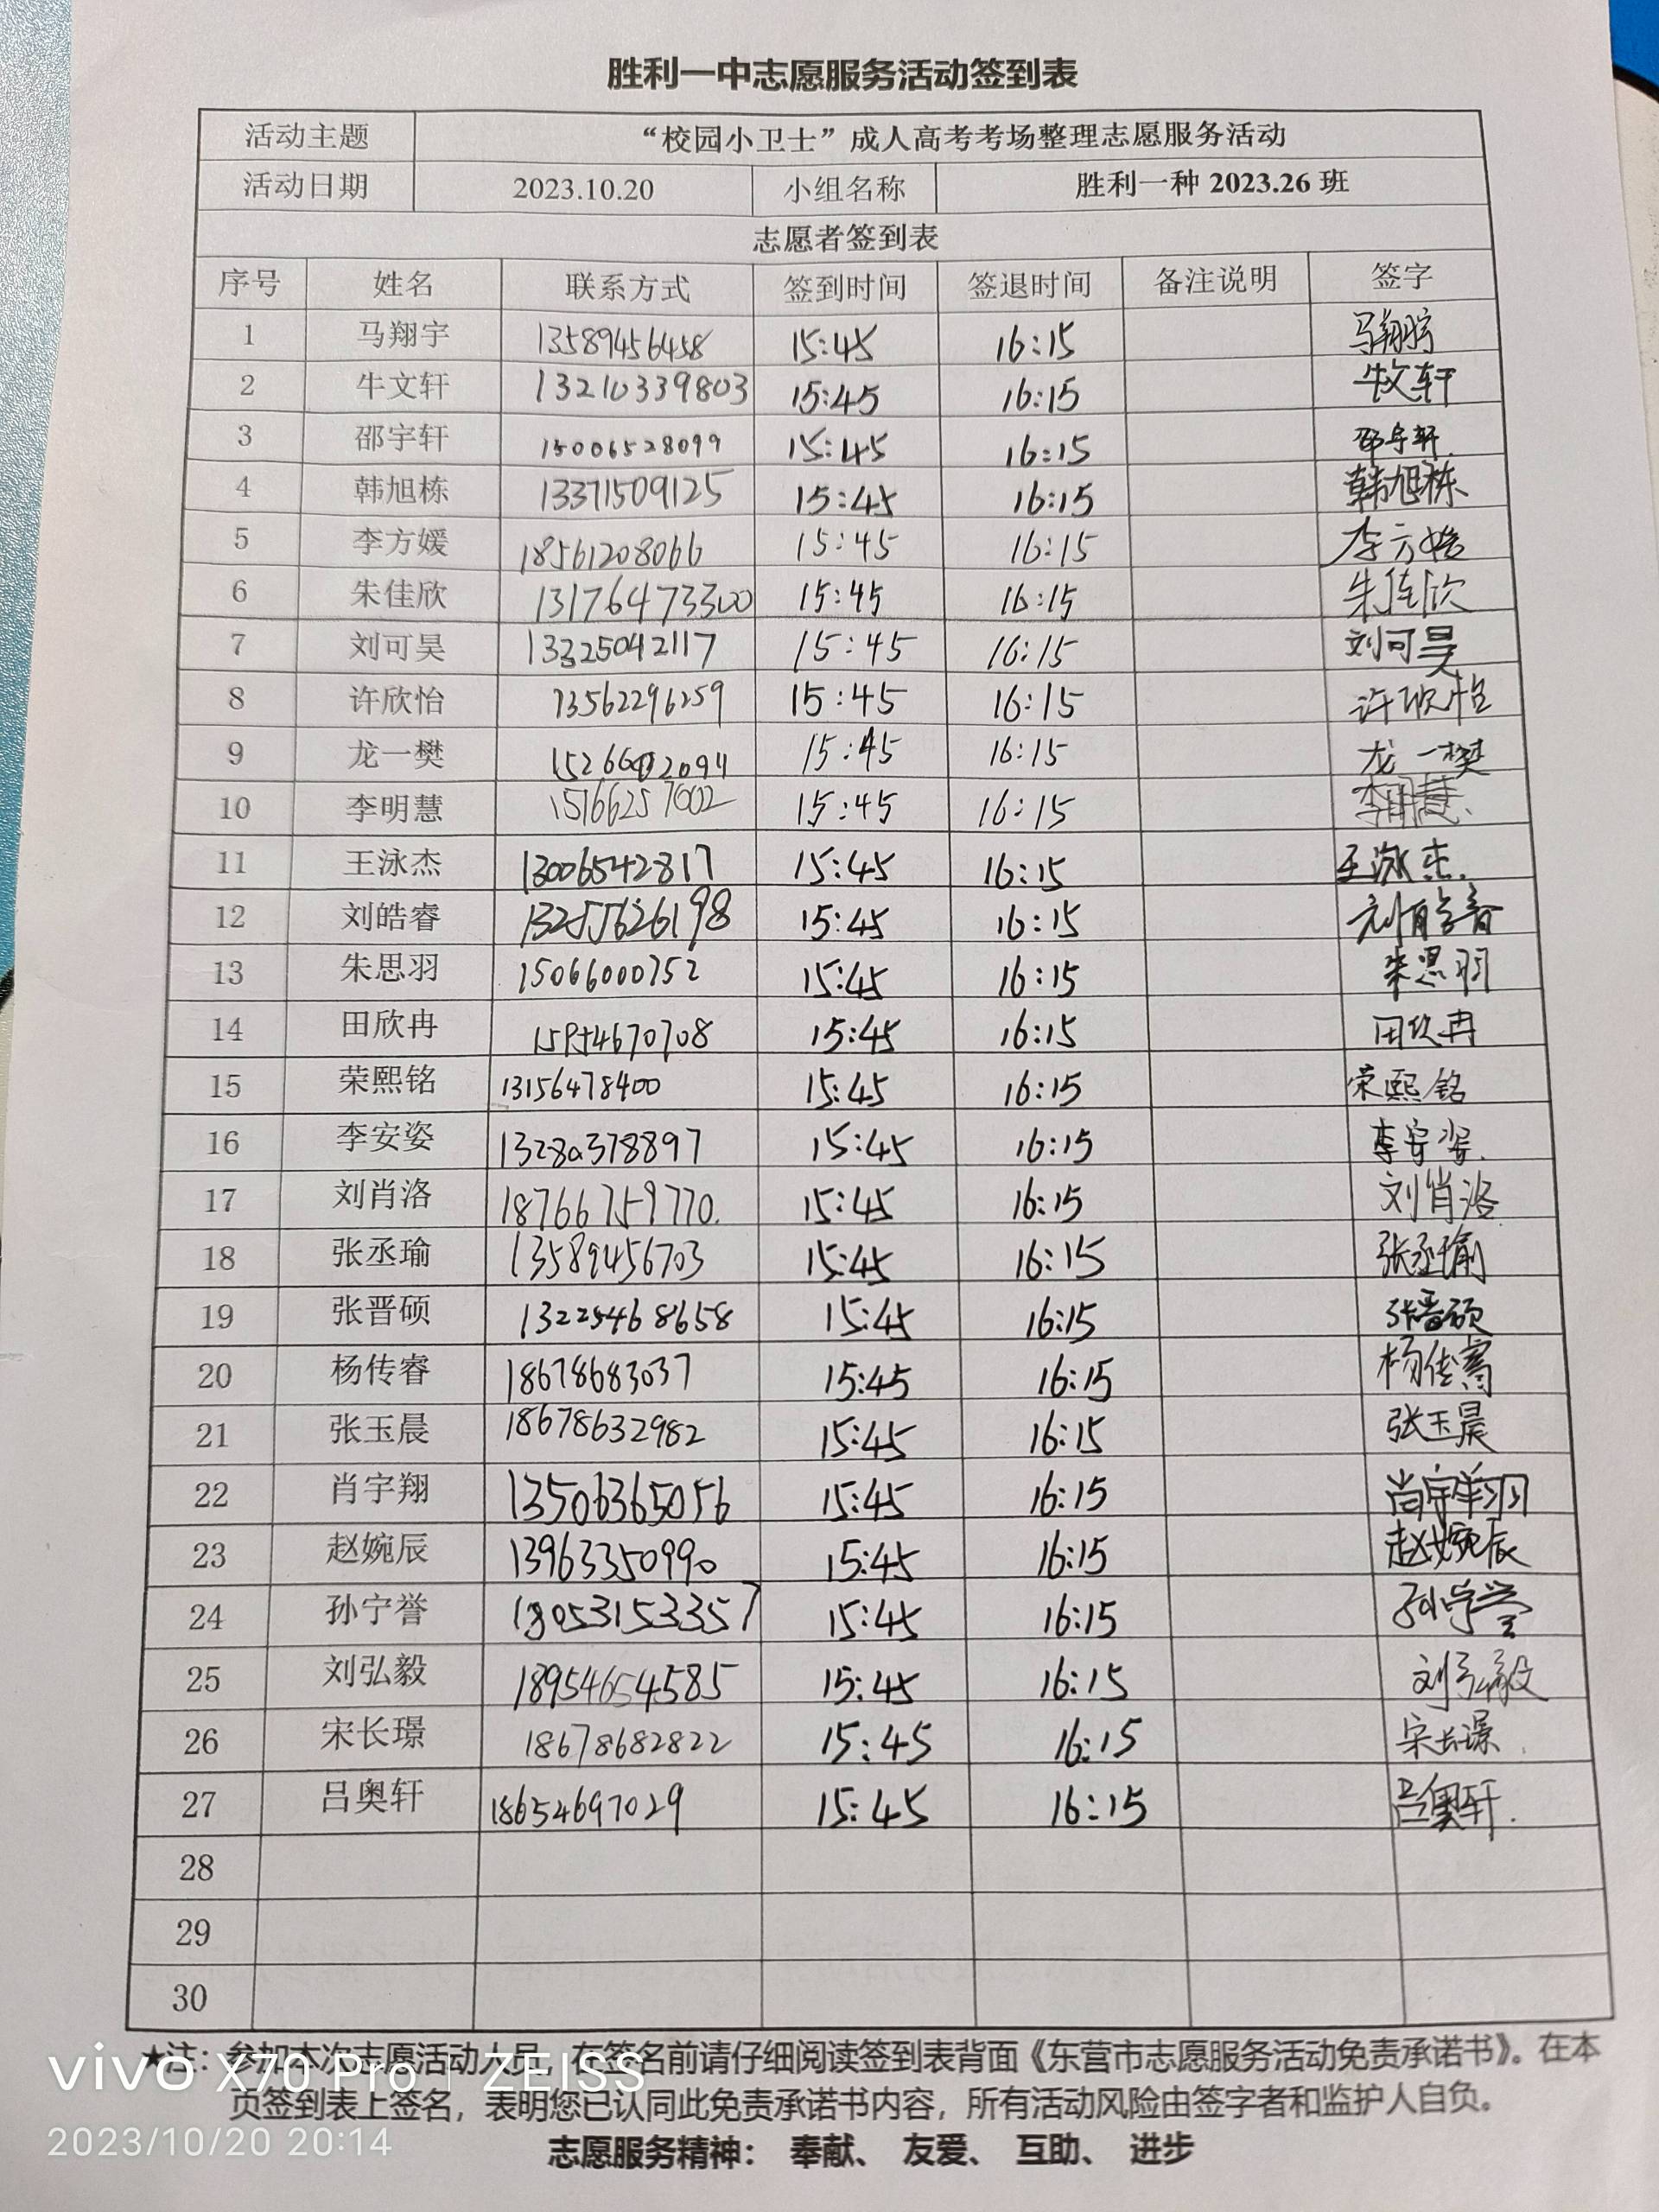 胜利一中志愿服务活动签到表
活动主题 “校园小卫士”成人高考考场整理志愿服务活动
活动日期 2023.10.20 小组名称 胜利一种 2023.26 班
志愿者签到表
序号 姓名 联系方式 签到时间 签退时间 备注说明 签字
1 马翔宇 13589456458 15:45 16:15 马翔宇
2 牛文轩 13210339803 15:45 16:15 牛文轩
3 邵宇轩 15006528099 15:45 16:15 邵宇轩.
4 韩旭栋 13371509125 15:45 16:15 韩旭栋
5 李方媛 18561208066 15:45 16:15 李方媛
6 朱佳欣 13176473300 15:45 16:15 朱佳欣
7 刘可昊 13325042117 15:45 16:15 刘可昊
8 许欣怡 13562296259 15:45 16:15 许欣怡
9 龙一樊 15:45 16:15 龙一樊
10 李明慧 15166257002 15:45 16:15 李明慧.
11 王泳杰 13006542817 15:45 16:15 王泳杰.
12 刘皓睿 13255626198 15:45 16:15 刘皓睿
13 朱思羽 15066000752 15:45 16:15 朱思羽
14 田欣冉 15:45 16:15 田欣冉
15 荣熙铭 13156478400 15:45 16:15 荣熙铭
16 李安姿 15:45 16:15 李安姿.
17 刘肖洛 18766759770. 15:45 16:15 刘肖洛
18 张丞瑜 13589456703 15:45 16:15 张丞瑜
19 张晋硕 13225468658 15:45 16:15 张晋硕
20 杨传睿 18678683037 15:45 16:15 杨传睿
21 张玉晨 18678632982 15:45 16:15 张玉晨
22 肖宇翔 13506365056 15:45 16:15 肖宇翔
23 赵婉辰 13963350990 15:45 16:15 赵婉辰
24 孙宁誉 18053153357 15:45 16:15 孙宁誉
25 刘弘毅 18954654585 15:45 16:15 刘弘毅
26 宋长璟 18678682822 15:45 16:15 宋长璟.
27 吕奥轩 18654697029 15:45 16:15 吕奥轩.
28
29
30
★注：参加本次志愿活动人员，在签名前请仔细阅读签到表背面《东营市志愿服务活动免责承诺书》。在本
页签到表上签名，表明您已认同此免责承诺书内容，所有活动风险由签字者和监护人自负。
志愿服务精神： 奉献、 友爱、 互助、 进步
vivo X70 Pro | ZEISS
2023/10/20 20:14